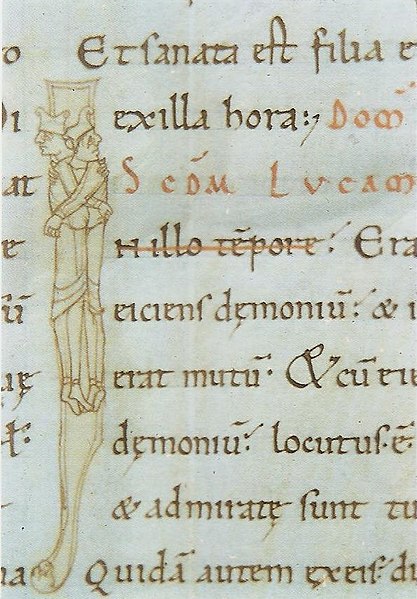 Et sanata eſt filia e
ex illa hora:, Dom̄
Scd̄m Lucam
IN illo tēpore. Era
eiciens dęmoniū. & i
erat mutū. & cū eie
dęmoniū. locutus. ē.
& admiratę ſunt tu
Quidā autem ex eiſ. di